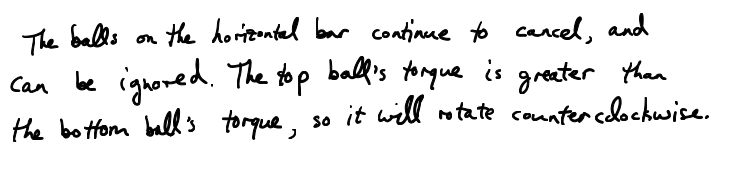 The balls on the horizontal bar continue to cancel, and
can be ignored. The top ball's torque is greater than
the bottom ball's torque, so it will rotate counterclockwise.